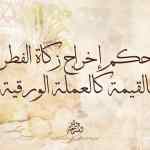 حكم إخراج زكاة الفطر
بالقيمة كالعملة الورقية